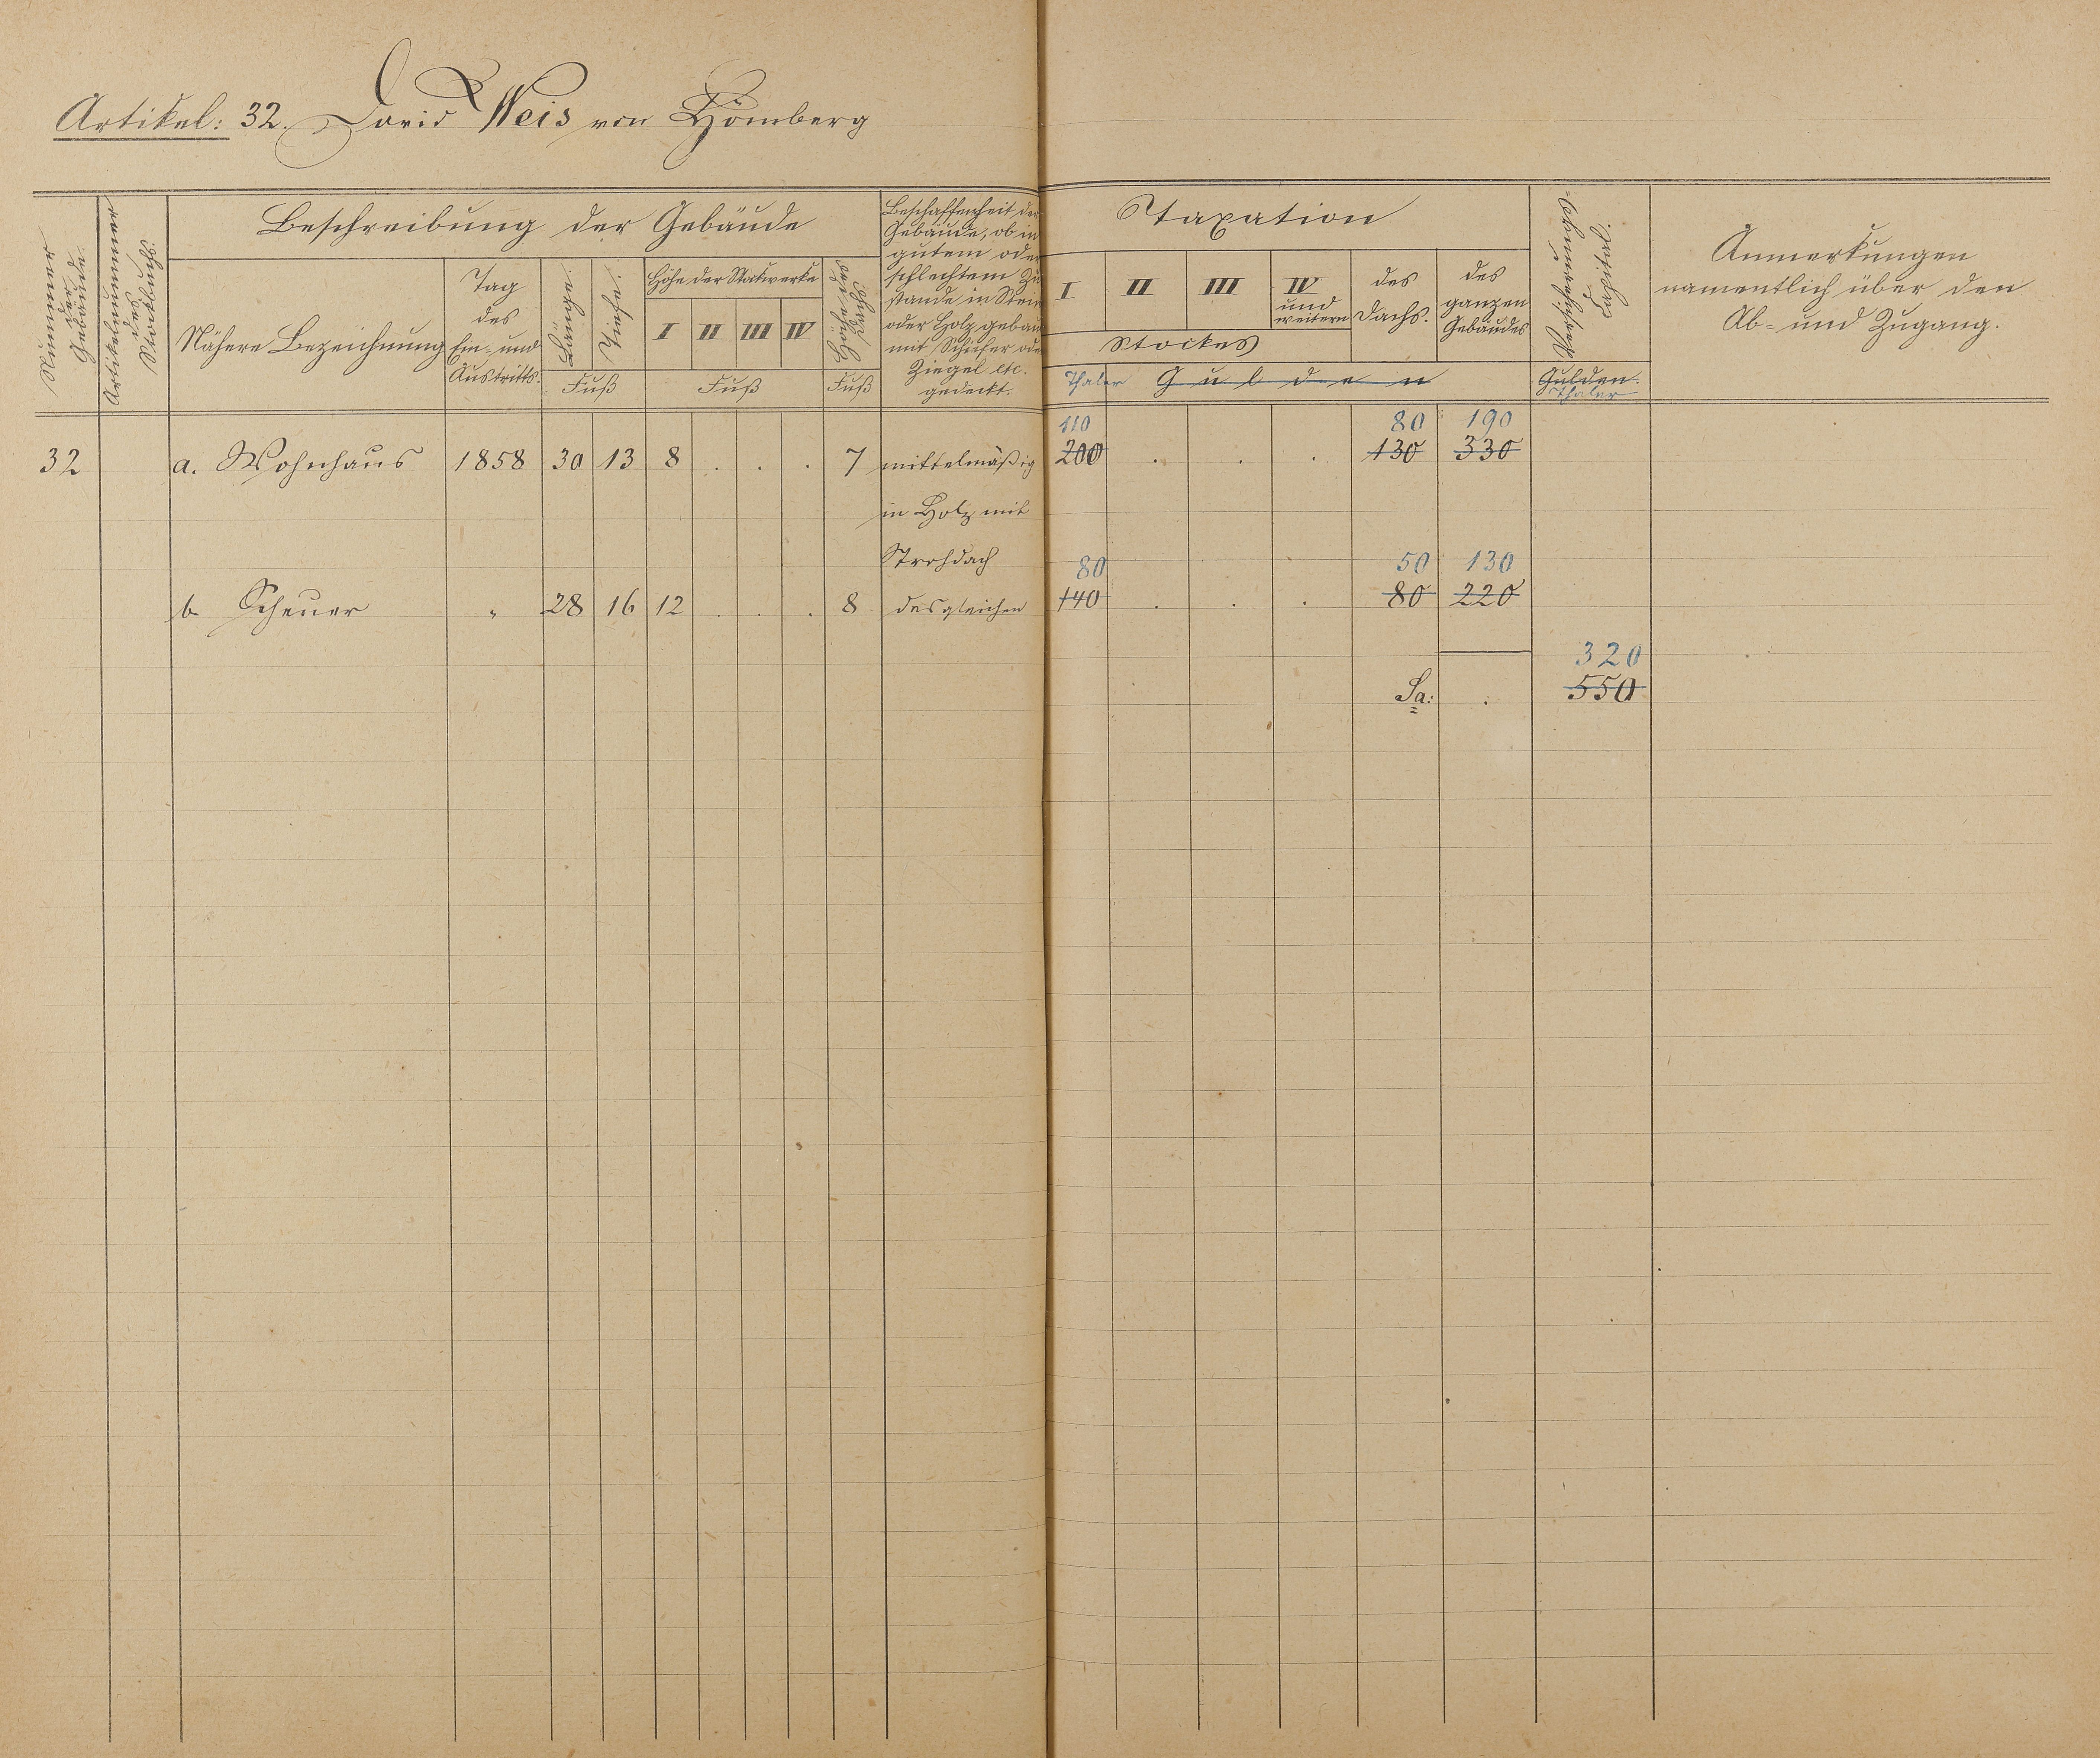 Artikel: 32. David Weis von Hömberg
Nummer der Gebäude
Artikelnummer des Stockbuchs.
Beschreibung der Gebäude
Nähere Bezeichnung
Tag des Ein- und Austritts.
Länge.
Tiefe.
Fuß
Höhe der Stockwerke
I II III IV
Fuß
Höhe des Dachs
Fuß
Beschaffenheit der
Gebäude, ob in
gutem oder
schlechtem Zu
stande in Stein
oder Holz gebaut
mit Schiefer oder
Ziegel etc.
gedeckt.
Taxation
I II III IV und weitern
Stockes
des Dachs.
des ganzen Gebäudes
Thaler Gulden
Versicherungs-
Capital.
Gulden.
Thaler
Anmerkungen
namentlich über den
Ab- und Zugang.
110 80 190
32 a. Wohnhaus 1858 30 13 8 . . . 7 mittelmäßig 200 . . . 130 330
in Holz mit
Strohdach
80 50 130
b Scheuer " 28 16 12 . . . 8 desgleichen 140 . . . 80 220
320
Sa: . 550